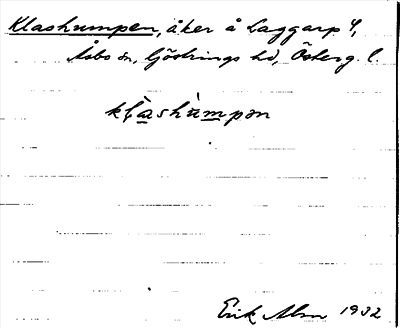 Klashumpen, åker å Laggarp 4,
Åsbo sn, Göstrings hd, Österg. l.
klashumpən
Erik Alm 1932